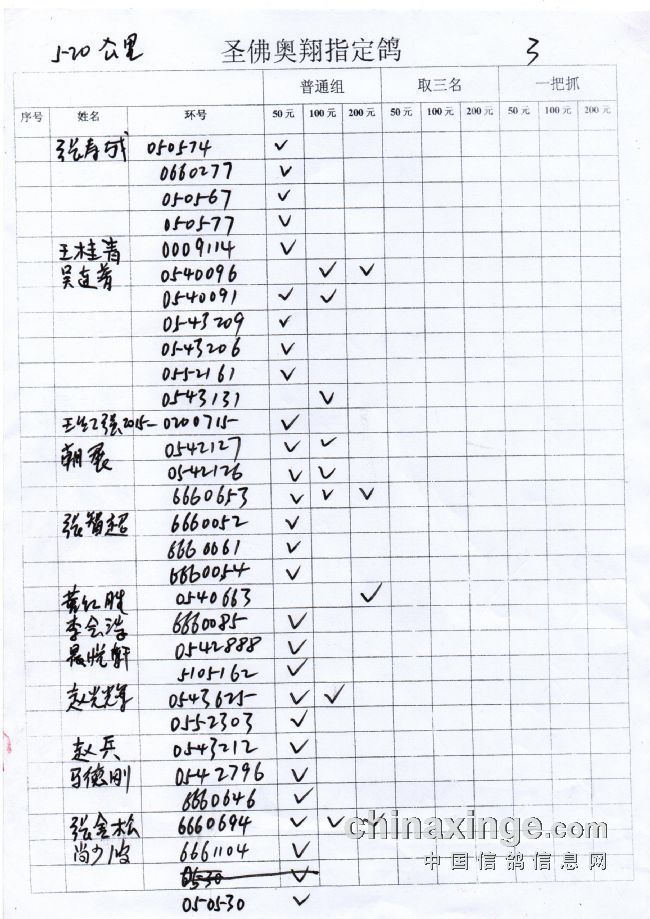 520公里 圣佛奥翔指定鸽 3
普通组 取三名 一把抓
序号 姓名 环号 50元 100元 200元 50元 100元 200元 50元 100元 200元
张春成 050574 ✓
0660277 ✓
050567 ✓
050577 ✓
王桂青 0009114 ✓
0540096 ✓ ✓
0540091 ✓ ✓
0543209 ✓
0543206 ✓
0552161 ✓
0543131 ✓
2015-0200715 ✓
朝展 0542127 ✓ ✓
0542126 ✓ ✓
6660653 ✓ ✓ ✓
张智超 6660052 ✓
6660061 ✓
6660054 ✓
黄红胜 0540663 ✓
李会浩 6660085 ✓
晨悦轩 0542888 ✓
5105162 ✓
赵光辉 0543625 ✓ ✓
0552303 ✓
赵兵 0543212 ✓
马德刚 0542796 ✓
6660646 ✓
张金松 6660694 ✓ ✓ ✓
尚少波 6661104 ✓
0530 ✓
050530 ✓
chinaxinge.com
中国信鸽信息网